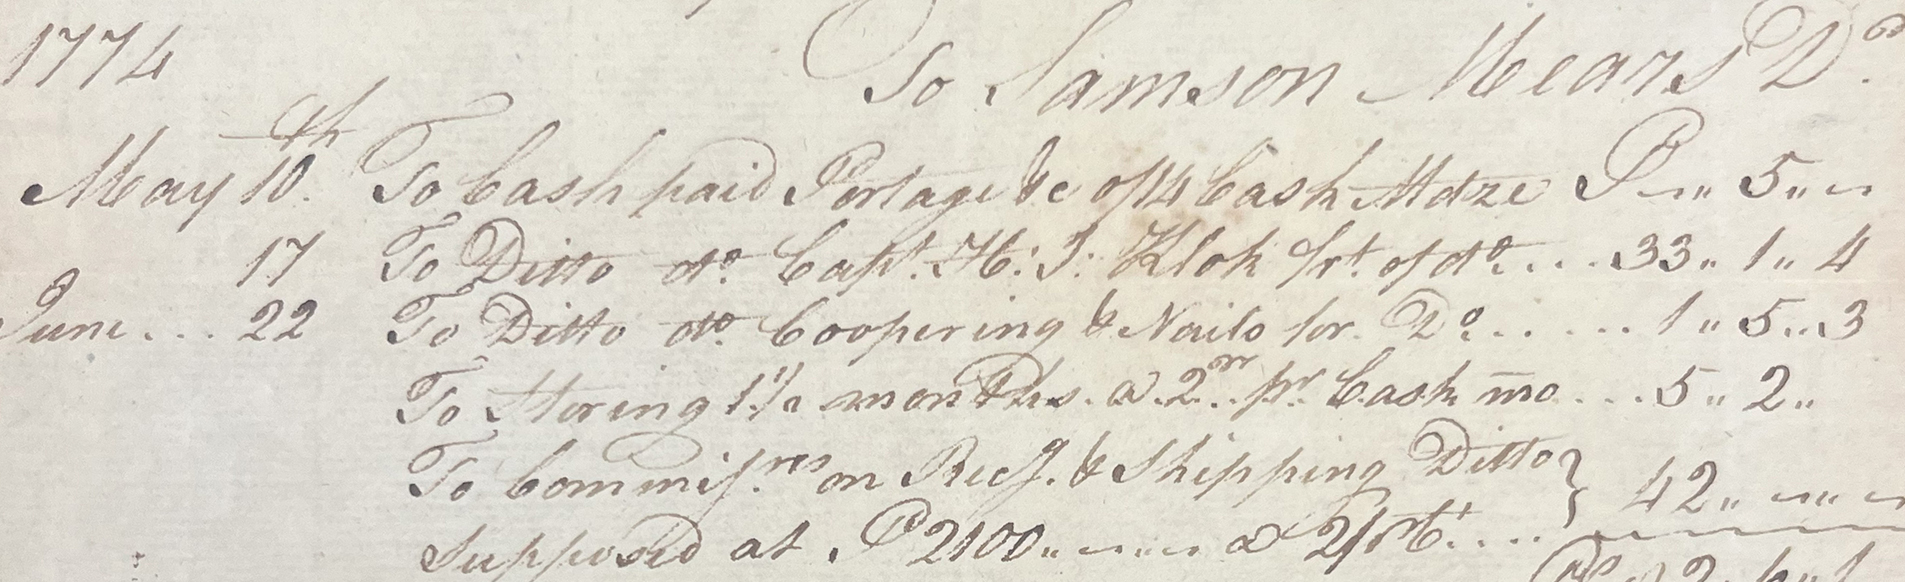 1774 To Samson Mears Dr.
May 10th To Cash paid Portage &c of 14 Cask Mdze P — „ 5 „ —
17 To Ditto do. Capt. H: I: Klok frt. of do. . . . . 33 „ 1 „ 4
June . . . 22 To Ditto do. Coopering & Nails for Do. . . . . . 1 „ 5 „ 3
To Storing 1 1/2 months a 2 rr pr Cask mo . . . 5 „ 2 „
To Commissns on Recg. & Shipping Ditto } 42 „ — „ —
Supposed at P 2100 „ — „ — a 2 pCt. . . . .